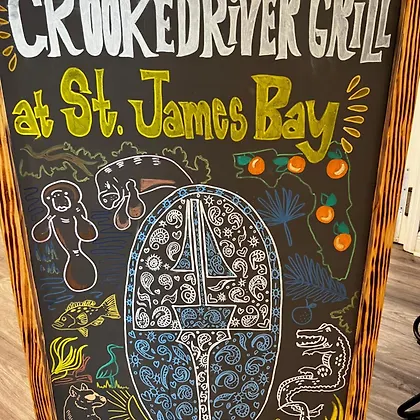 CROOKEDRIVER GRILL
at St. James Bay